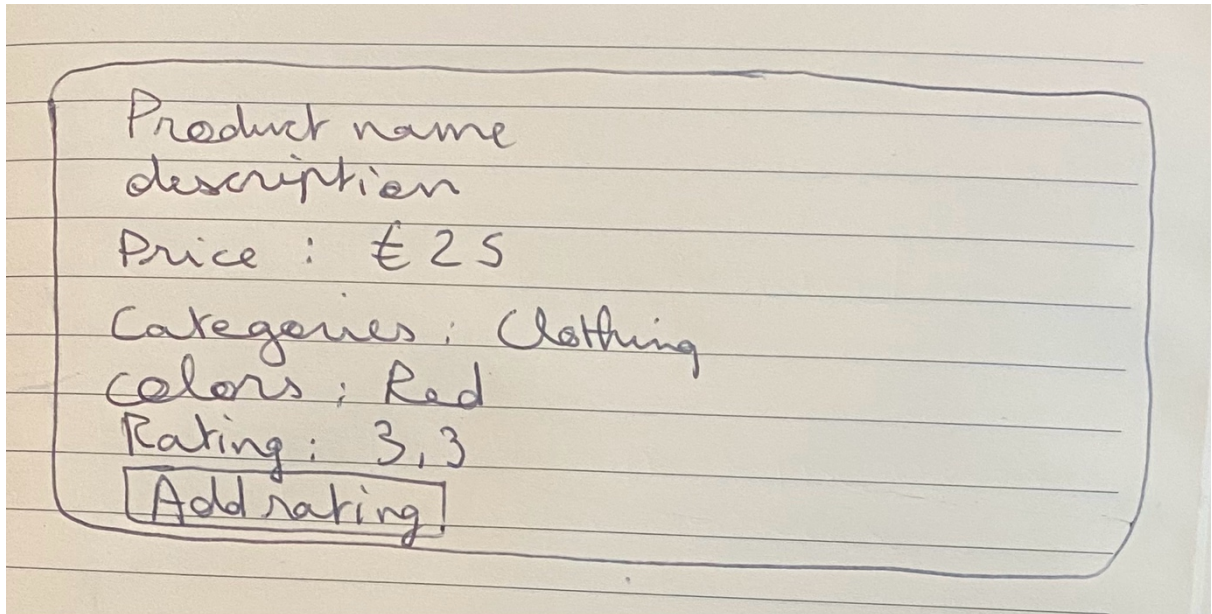 Product name
description
Price : €25
Categories: Clothing
colors: Red
Rating: 3,3
Add rating